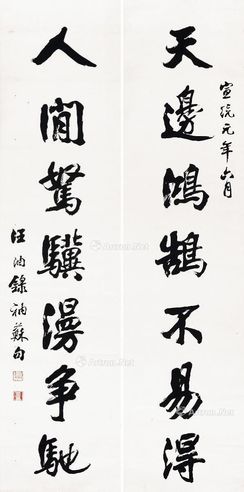 天邊鴻鵠不易得
宣統元年六月
人間駑驥漫爭馳
汪洵錄
蘇句